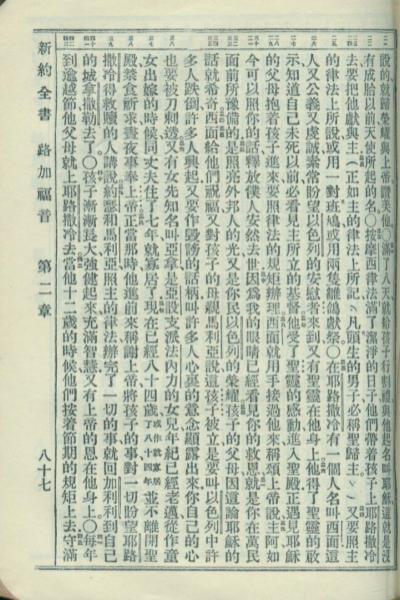 說的就歸榮耀與上帝讚美他〇滿了八天就給孩子行割禮與他起名叫耶穌這就是沒
有成胎以前天使所起的名〇按摩西律法滿了潔淨的日子他們帶着孩子上耶路撒冷
去要把他獻與主(正如主的律法上所記凡頭生的男子必稱聖歸主)又要照主
的律法上所說或用一對班鳩或用兩隻雛鴿獻祭〇在耶路撒冷有一個人名叫西面這
人又公義又虔誠素常盼望以色列的安慰者來到又有聖靈在他身上他得了聖靈的啟
示知道自己未死以前必看見主所立的基督他受了聖靈的感動進入聖殿正遇見耶穌
的父母抱着孩子進來要照律法的規矩辦理西面就用手接過他來稱頌上帝說主阿如
今可以照你的話釋放僕人安然去世因為我的眼睛已經看見你的救恩就是你在萬民
面前所豫備的是照亮外邦人的光又是你民以色列的榮耀孩子的父母因這論耶穌的
話就希奇西面給他們祝福又對孩子的母親馬利亞說這孩子被立是要叫以色列中許
多人跌倒許多人興起又要作毀謗的話柄叫許多人心裏的意念顯露出來你自己的心
也要被刀刺透又有女先知名叫亞拿是亞設支派法內力的女兒年紀已經老邁從作童
女出嫁的時候同丈夫住了七年就寡居了現在已經八十四歲或作就寡居了八十四年並不離開聖
殿禁食祈求晝夜事奉上帝正當那時他進前來稱謝上帝將孩子的事對一切盼望耶路
撒冷得救贖的人講說約瑟和馬利亞照主的律法辦完了一切的事就回加利利到自己
的城拿撒勒去了〇孩子漸漸長大強健起來充滿智慧又有上帝的恩在他身上〇每年
到逾越節他父母就上耶路撒冷去當他十二歲的時候他們按着節期的規矩上去守滿
新約全書 路加福音 第二章 八十七